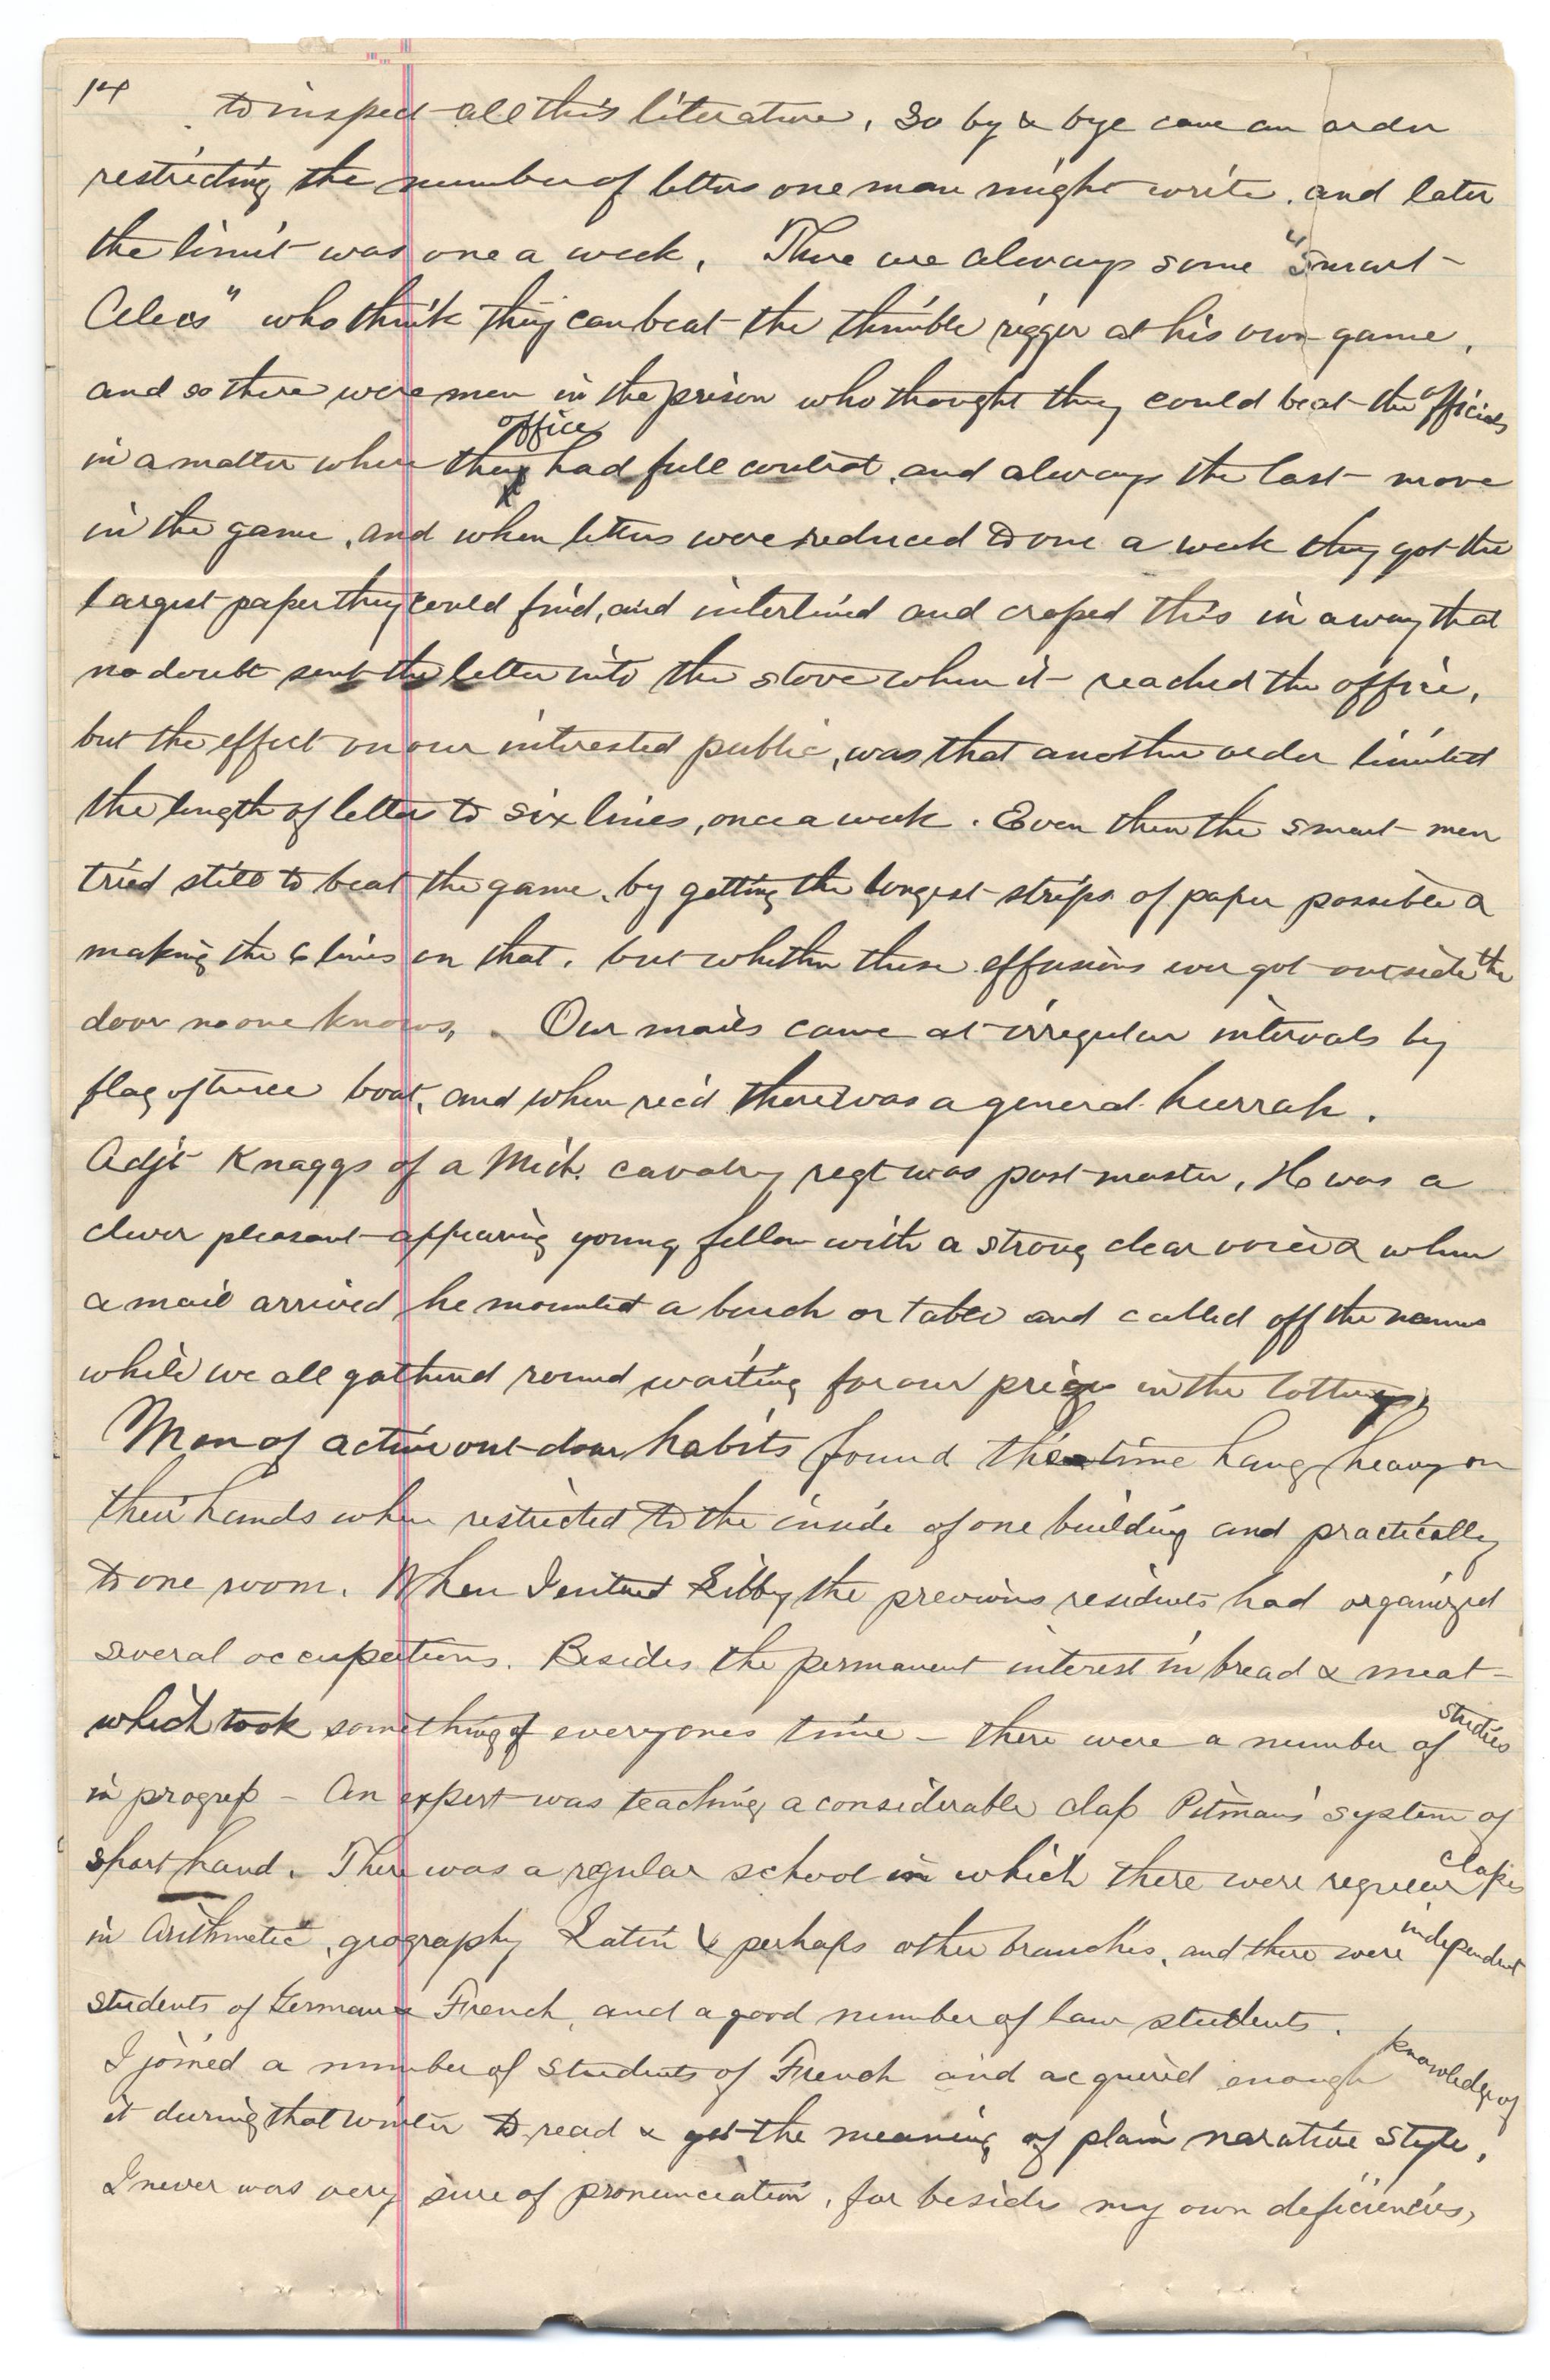 14
to inspect all this literature, So by & bye came an order
restricting the number of letters one man might write. and later
the limit was one a week. There are always some "Smart-
Alecs" who think they can beat the thimble rigger at his own game,
and so there were men in the prison who thought they could beat the officials
in a matter where the office had full control, and always the last move
in the game, and when letters were reduced to one a week they got the
largest paper they could find, and interlined and crossed this in a way that
no doubt sent the letter into the stove when it reached the office,
but the effect on our interested public, was that another order limited
the length of letters to six lines, once a week. Even then the smart men
tried still to beat the game, by getting the longest strips of paper possible &
making the 6 lines on that. but whether these effusions ever got outside the
door no one knows. Our mails came at irregular intervals by
flag of truce boat, and when rec'd there was a general hurrah.
Adjt Knaggs of a Mich. cavalry regt was post master, He was a
clever pleasant appearing young fellow with a strong clear voice & when
a mail arrived he mounted a bench or table and called off the names
while we all gathered round waiting for our prize in the lottery,
Men of active out-door habits found the time hang heavy on
their hands when restricted to the inside of one building and practically
to one room. When I entered Libby the previous residents had organized
several occupations. Besides the permanent interest in bread & meat -
which took something of everyones time - there were a number of studies
in progress - An expert was teaching a considerable class Pitmans system of
short hand. There was a regular school in which there were regular classes
in Arithmetic, geography Latin & perhaps other branches, and there were independent
students of German & French, and a good number of law students.
I joined a number of students of French and acquired enough knowledge of
it during that winter to read & get the meaning of plain narative style,
I never was very sure of pronunciation, for besides my own deficiencies,